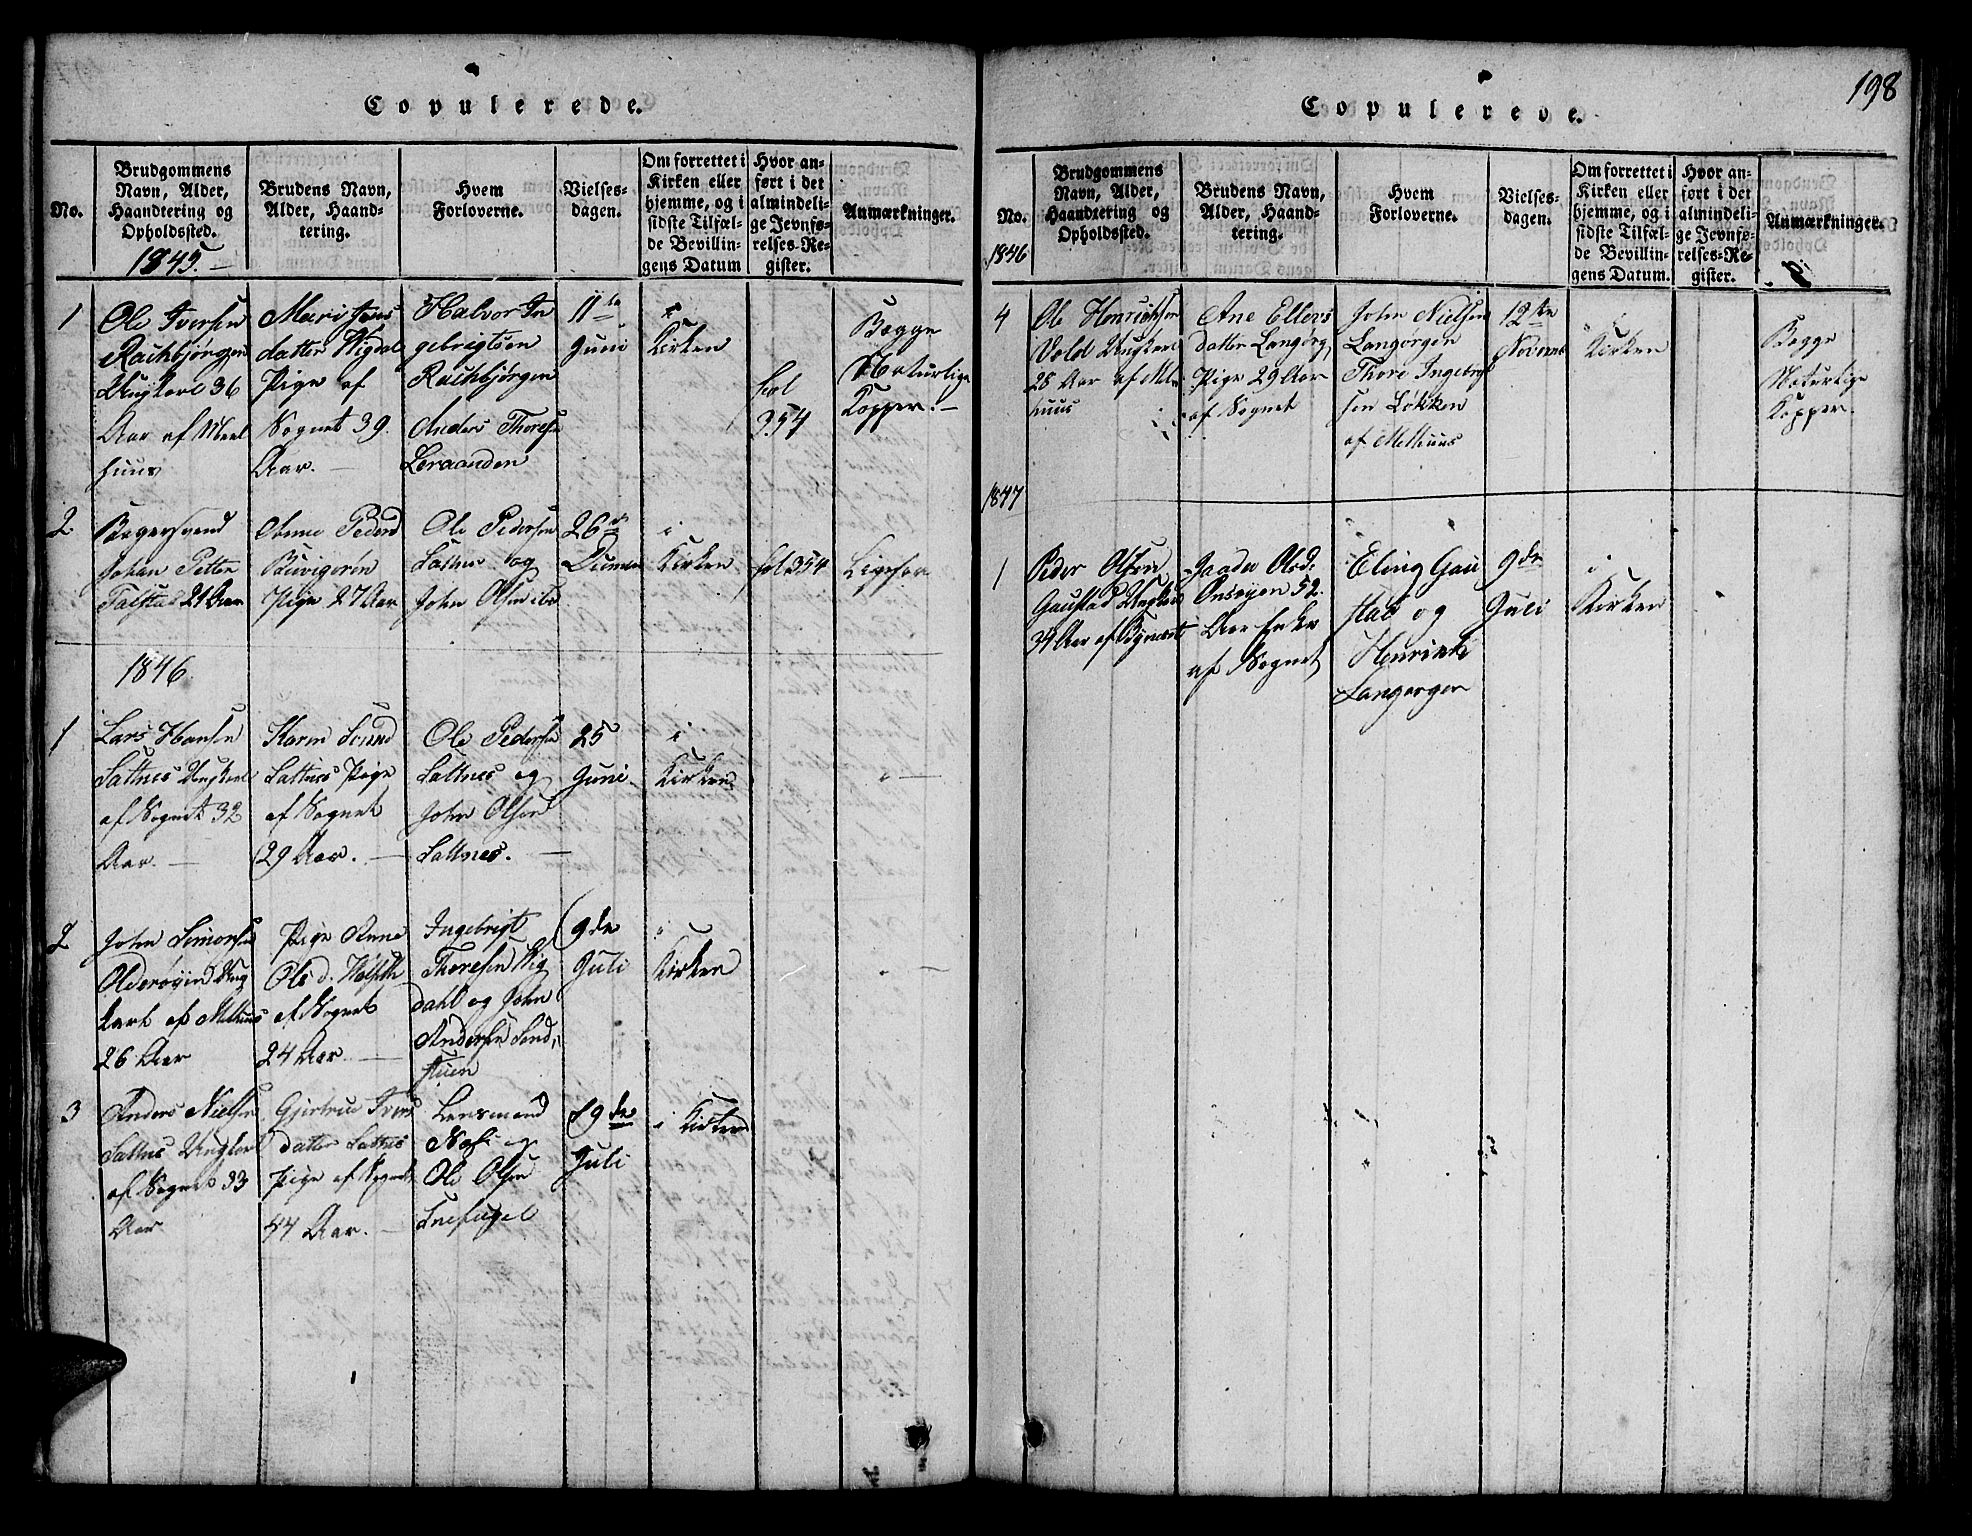 198
Copulerede.
No.
Brudgommens
Navn, Alder,
Haandtering og
Opholdssted.
1845.
Brudens Navn,
Alder, Haand-
tering.
Hvem
Forloverne.
Vielses-
dagen.
Om forrettet i
Kirken eller
hjemme, og i
sidste Tilfæl-
de Bevillin-
gens Datum
Hvor an-
ført i det
almindeli-
ge Jevnfø-
relses-Re-
gister.
Anmærkninger.
1
Ole Iversen
Rachbjörgen
Ungkarl 36
Aar af Meel
huus
Mari
datter
Pige af
Sognet 39
Aar.
Halvor In
gebrigtsen
Rachbjørgen
Anders Thoresen
Leraanden
11te
Juni
i
Kirken
fol
354
Begge
Naturlige
Kopper.
2
Johan Petter
29 Aar
Anne Pedersd
Pige 27 Aar
Ole Pedersen
Saltnes og
John Olsen
26
i
Kirken
fol 354
Ligesaa
1846
1
Lars Hansen
Saltnes Ungkarl
af Sognet 32
Aar.
Karen
Saltnes Pige
af Sognet
29 Aar.
Ole Pedersen
Saltnes og
John Olsen
Saltnes.
25
Juni
i
Kirken
2
John Simonsen
Olderøyen Ung
karl af Melhuus
26 Aar
Pige Anne
Ols d.
af Sognet
24 Aar
Ingebrigt
Thoresen Vig
dahl og John
Andersen
9de
Juli
i
Kirken
3
Anders Nielsen
Saltnes Ungkarl
af Sognet 33
Aar
Gjertrue Ivers
datter Saltnes
Pige af Sognet
44 Aar.
Lensmand
og
Ole Olsen
Snefugel
19de
Juli
i Kirken
Copulerede.
No.
1846
Brudgommens
Navn, Alder,
Haandtering og
Opholdssted.
Brudens Navn,
Alder, Haand-
tering.
Hvem
Forloverne.
Vielses-
dagen.
Om forrettet i
Kirken eller
hjemme, og i
sidste Tilfæl-
de Bevillin-
gens Datum.
Hvor an-
ført i det
almindeli-
ge Jevnfø-
relses-Re-
gister.
Anmærkninger.
4
Ole Henrichsen
Vold Ungkarl
28 Aar af Mel
huus
Ane Ellers
datter Langørg
Pige 29 Aar
af Sognet
John Nielsen
Langørgen
Thore Ingebrigt
sen Løkken
af Melhuus
12te
Novemb
i
Kirken
Begge
Naturlige
Kopper.
1847
1
Peder Olsen
Gaustad Ungkarl
34 Aar af Bynæset
Olsd.
Onsøyen 52
Aar Enke
af Sognet
Eling Gau
stad og
Henrich
Langørgen
9de
Juli
i
Kirken